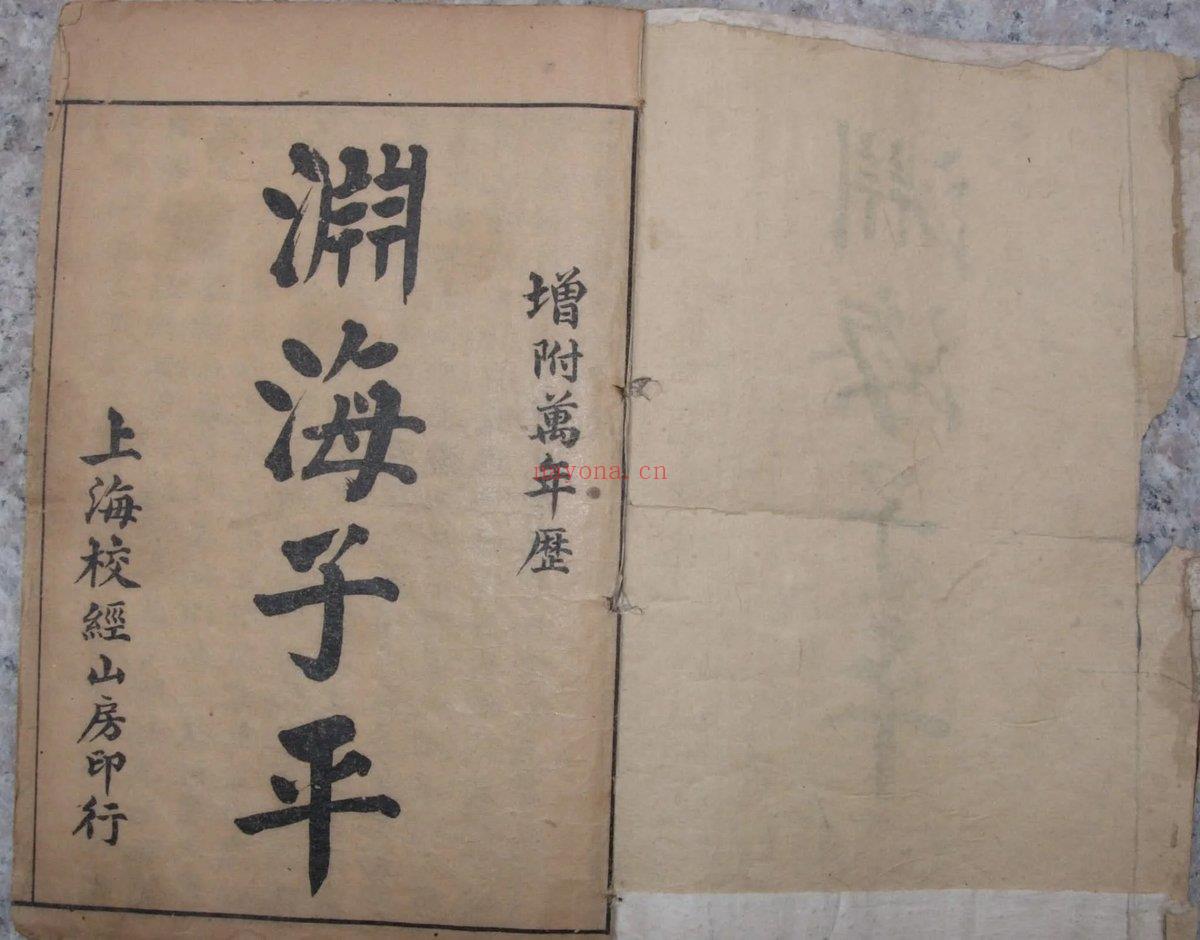 增附萬年歴
淵海子平
上海校經山房印行
nryona.cn